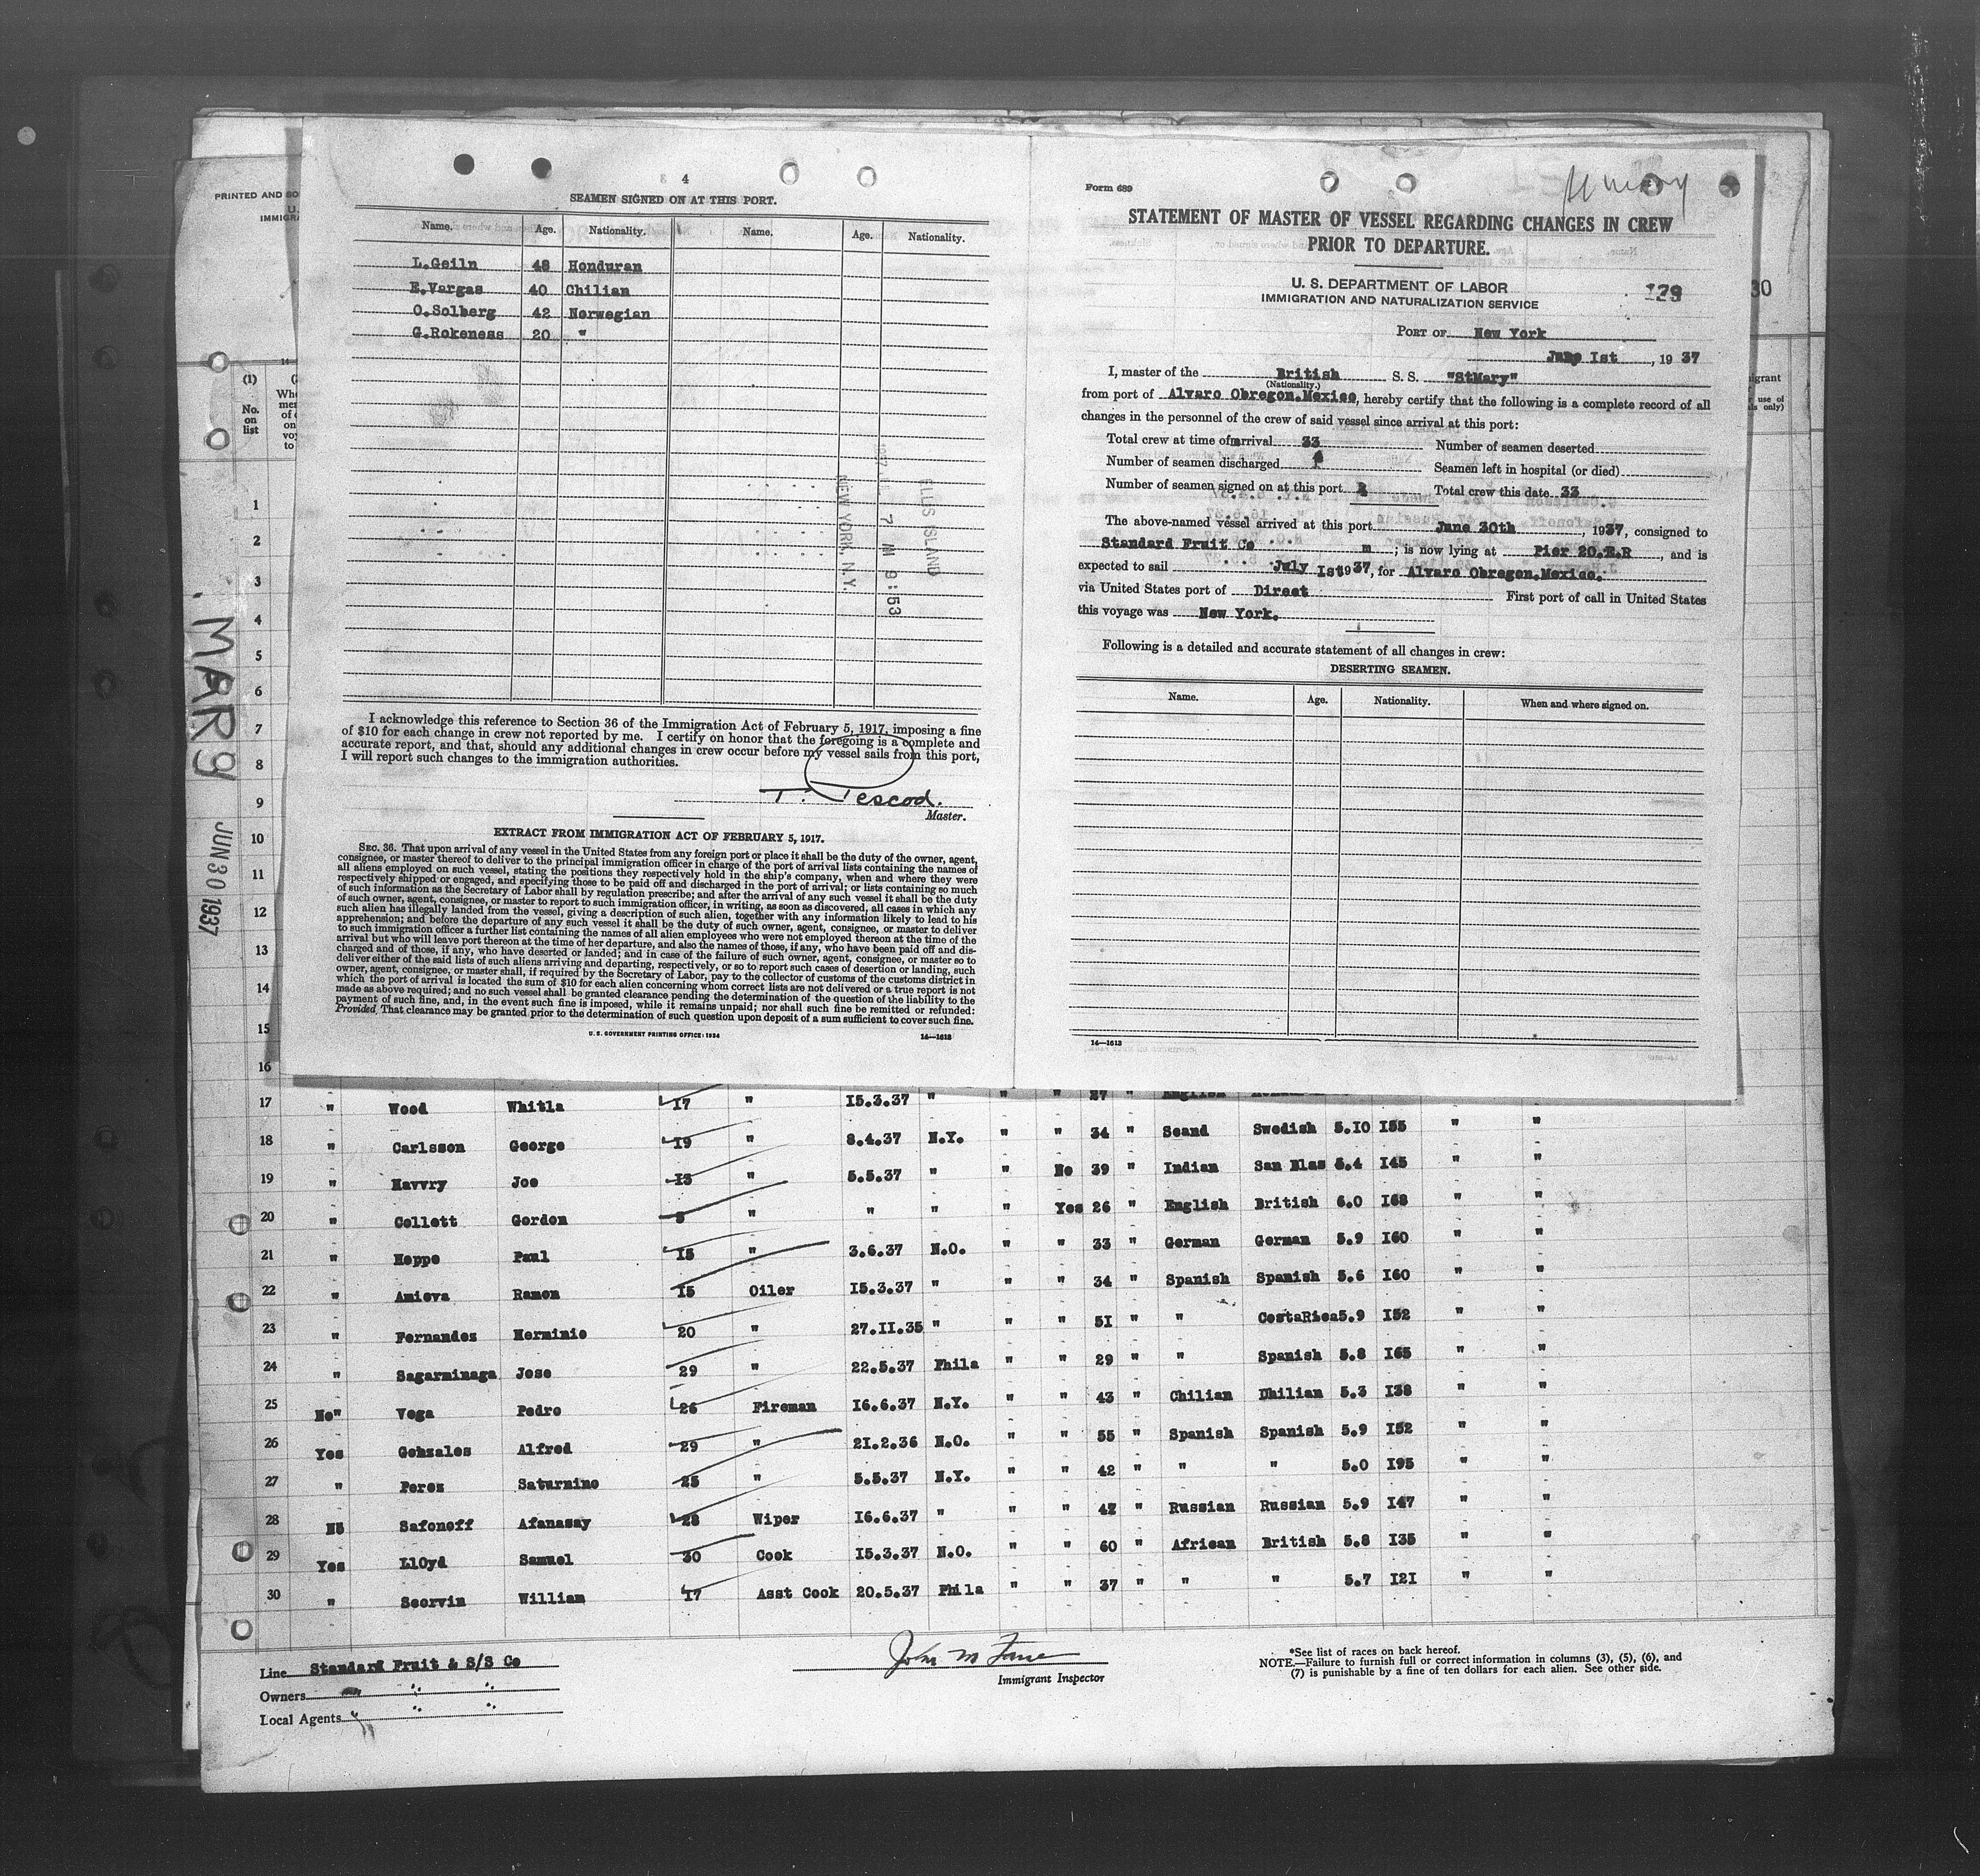 4
SEAMEN SIGNED ON AT THIS PORT.
Name. Age. Nationality. Name. Age. Nationality.
L.Geiln 48 Honduran
E.Vargas 40 Chilian
O.Solberg 42 Norwegian
G.Rokeness 20 "
ELLIS ISLAND
7 M 9:53
NEW YORK, N.Y.
I acknowledge this reference to Section 36 of the Immigration Act of February 5, 1917, imposing a fine
of $10 for each change in crew not reported by me. I certify on honor that the foregoing is a complete and
accurate report, and that, should any additional changes in crew occur before my vessel sails from this port,
I will report such changes to the immigration authorities.
Master.
EXTRACT FROM IMMIGRATION ACT OF FEBRUARY 5, 1917.
SEC. 36. That upon arrival of any vessel in the United States from any foreign port or place it shall be the duty of the owner, agent,
consignee, or master thereof to deliver to the principal immigration officer in charge of the port of arrival lists containing the names of
all aliens employed on such vessel, stating the positions they respectively hold in the ship's company, when and where they were
respectively shipped or engaged, and specifying those to be paid off and discharged in the port of arrival; or lists containing so much
of such information as the Secretary of Labor shall by regulation prescribe; and after the arrival of any such vessel it shall be the duty
of such owner, agent, consignee, or master to report to such immigration officer, in writing, as soon as discovered, all cases in which any
such alien has illegally landed from the vessel, giving a description of such alien, together with any information likely to lead to his
apprehension; and before the departure of any such vessel it shall be the duty of such owner, agent, consignee, or master to deliver
to such immigration officer a further list containing the names of all alien employees who were not employed thereon at the time of the
arrival but who will leave port thereon at the time of her departure, and also the names of those, if any, who have been paid off and dis-
charged and of those, if any, who have deserted or landed; and in case of the failure of such owner, agent, consignee, or master so to
deliver either of the said lists of such aliens arriving and departing, respectively, or so to report such cases of desertion or landing, such
owner, agent, consignee, or master shall, if required by the Secretary of Labor, pay to the collector of customs of the customs district in
which the port of arrival is located the sum of $10 for each alien concerning whom correct lists are not delivered or a true report is not
made as above required; and no such vessel shall be granted clearance pending the determination of the question of the liability to the
payment of such fine, and, in the event such fine is imposed, while it remains unpaid; nor shall such fine be remitted or refunded:
Provided, That clearance may be granted prior to the determination of such question upon deposit of a sum sufficient to cover such fine.
U. S. GOVERNMENT PRINTING OFFICE: 1934 14—1613
Form 689
STATEMENT OF MASTER OF VESSEL REGARDING CHANGES IN CREW
PRIOR TO DEPARTURE.
U. S. DEPARTMENT OF LABOR
IMMIGRATION AND NATURALIZATION SERVICE
129
PORT OF New York
Ist, 1937
I, master of the British S. S. "StMary"
(Nationality.)
from port of Alvaro Obregon.Mexico, hereby certify that the following is a complete record of all
changes in the personnel of the crew of said vessel since arrival at this port:
Total crew at time of arrival 33 Number of seamen deserted
Number of seamen discharged Seamen left in hospital (or died)
Number of seamen signed on at this port Total crew this date 33
The above-named vessel arrived at this port June 30th, 1937, consigned to
Standard Fruit Co m; is now lying at Pier 20.E.R, and is
expected to sail July Ist 1937, for Alvaro Obregon.Mexico.
via United States port of Direct First port of call in United States
this voyage was New York.
Following is a detailed and accurate statement of all changes in crew:
DESERTING SEAMEN.
Name. Age. Nationality. When and where signed on.
14—1613
PRINTED AND
30
(1)
No. on list
MARY
JUN 30 1937
1
2
3
4
5
6
7
8
9
10
11
12
13
14
15
16
17 " Wood Whitla 17 " 15.3.37 " " " 27 " English
18 " Carlsson George 19 " 8.4.37 N.Y. " " 34 " Scand Swedish 5.10 I55 " "
19 " Havvry Joe 13 " 5.5.37 " " No 39 " Indian San Blas 5.4 I45 " "
20 " Collett Gordon " " " " Yes 26 " English British 6.0 I68 " "
21 " Heppe Paul 15 " 3.6.37 N.O. " " 33 " German German 5.9 I60 " "
22 " Amieva Ramon 15 Oiler 15.3.37 " " " 34 " Spanish Spanish 5.6 I60 " "
23 " Fernandes Herminio 20 " 27.II.35 " " " 5I " " CostaRica 5.9 I52 " "
24 " Sagarminaga Jose 29 " 22.5.37 Phila " " 29 " " Spanish 5.8 I65 " "
25 No" Vega Pedro 26 Fireman 16.6.37 N.Y. " " 43 " Chilian Dhilian 5.3 I38 " "
26 Yes Gonzales Alfred 29 " 21.2.36 N.O. " " 55 " Spanish Spanish 5.9 I52 " "
27 " Perez Saturnino 25 " 5.5.37 N.Y. " " 42 " " " 5.0 I95 " "
28 Safonoff Afanasay 28 Wiper 16.6.37 " " " 42 " Russian Russian 5.9 I47 " "
29 Yes LlOyd Samuel 30 Cook 15.3.37 N.O. " " 60 " African British 5.8 I35 " "
30 " Scorvin William 17 Asst Cook 20.5.37 Phila " " 37 " " " 5.7 I2I " "
Line Standard Fruit & S/S Co
Owners " " "
Local Agents " " "
Immigrant Inspector
*See list of races on back hereof.
NOTE.—Failure to furnish full or correct information in columns (3), (5), (6), and
(7) is punishable by a fine of ten dollars for each alien. See other side.